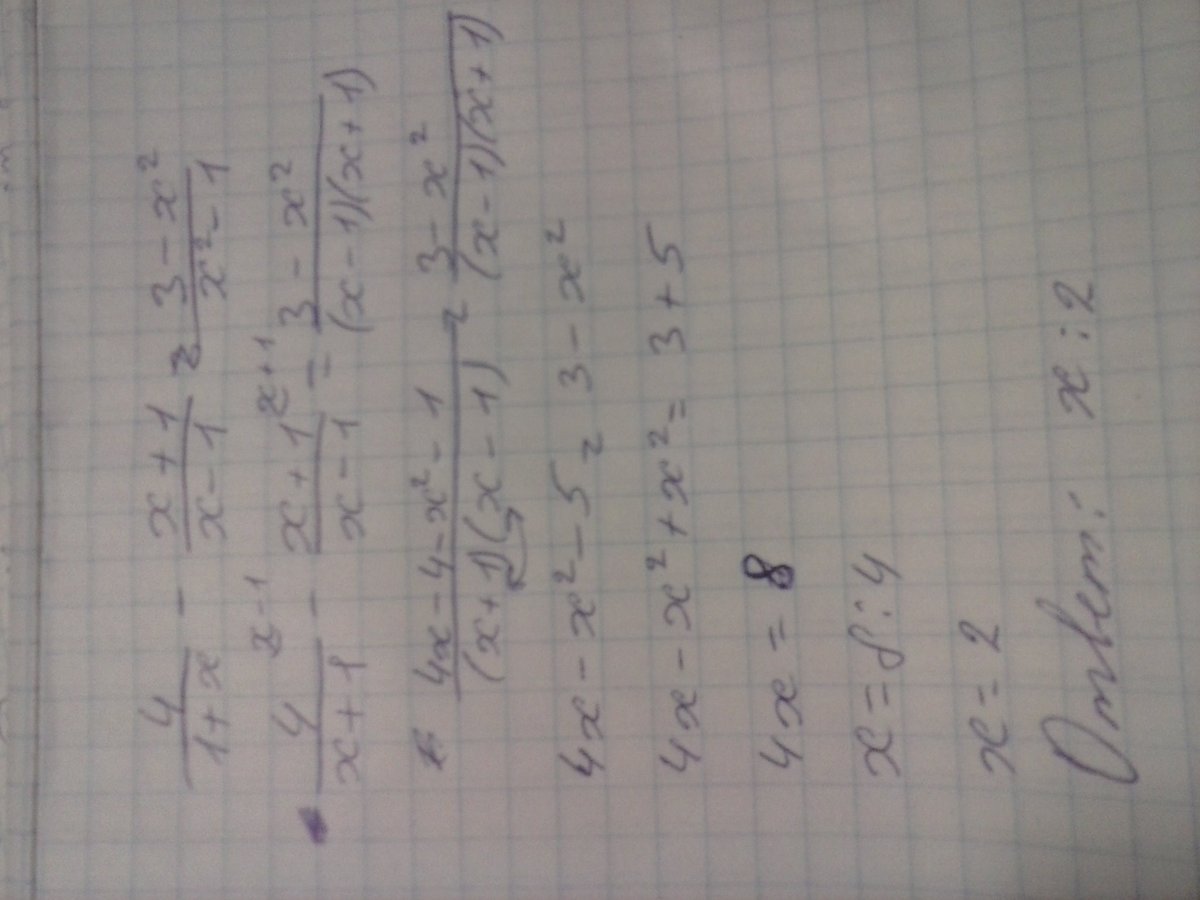 4/(1+x) - (x+1)/(x-1) = (3-x²)/(x²-1)
4/(x+1) x-1 - (x+1)/(x-1) x+1 = (3-x²)/((x-1)(x+1))
(4x-4-x²-1)/((x+1)(x-1)) = (3-x²)/((x-1)(x+1))
4x-x²-5 = 3-x²
4x-x²+x² = 3+5
4x = 8
x = 8:4
x = 2
Ответ: x:2